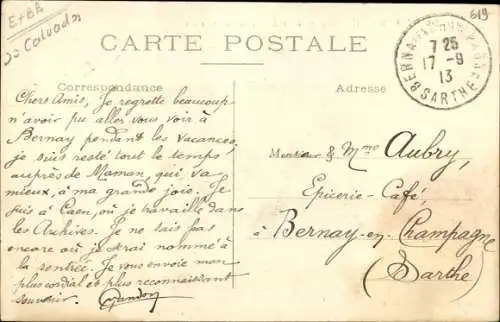 E + BR
Do Calvados
619
BERNAY-EN-CHAMPAGNE
7 25
17 - 9
13
SARTHE
CARTE POSTALE
Correspondance
Adresse
Chers Amis, Je regrette beaucoup
n'avoir pu aller vous voir à
Bernay pendant les vacances,
je suis resté tout le temps
auprès de Maman, qui va
mieux, à ma grande joie. Je
suis à Caen, où je travaille dans
les Archives. Je ne sais pas
encore où je serai nommé à
la rentrée. Je vous envoie mon
plus cordial et plus reconnaissant
souvenir.
Monsieur & Mme Aubry,
Epicerie-Café,
à Bernay-en-Champagne
(Sarthe)